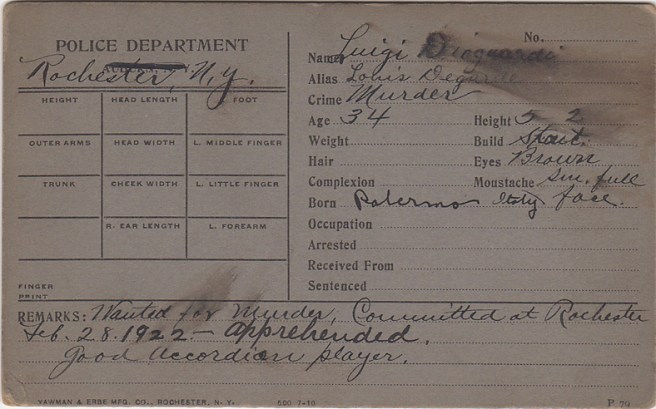 No.
POLICE DEPARTMENT
Rochester, N.Y.
Name Luigi
Alias Louis
Crime Murder
Age 34 Height 5 2
Weight Build Stout.
Hair Eyes Brown
Complexion Moustache Sm. full
Born Palermo Italy face.
Occupation
Arrested
Received From
Sentenced
HEIGHT HEAD LENGTH FOOT
OUTER ARMS HEAD WIDTH L. MIDDLE FINGER
TRUNK CHEEK WIDTH L. LITTLE FINGER
R. EAR LENGTH L. FOREARM
FINGER
PRINT
REMARKS: Wanted for Murder, Committed at Rochester
Feb. 28. 1922 - apprehended.
Good accordian player.
YAWMAN & ERBE MFG. CO., ROCHESTER, N. Y. 500 7-18 P 79